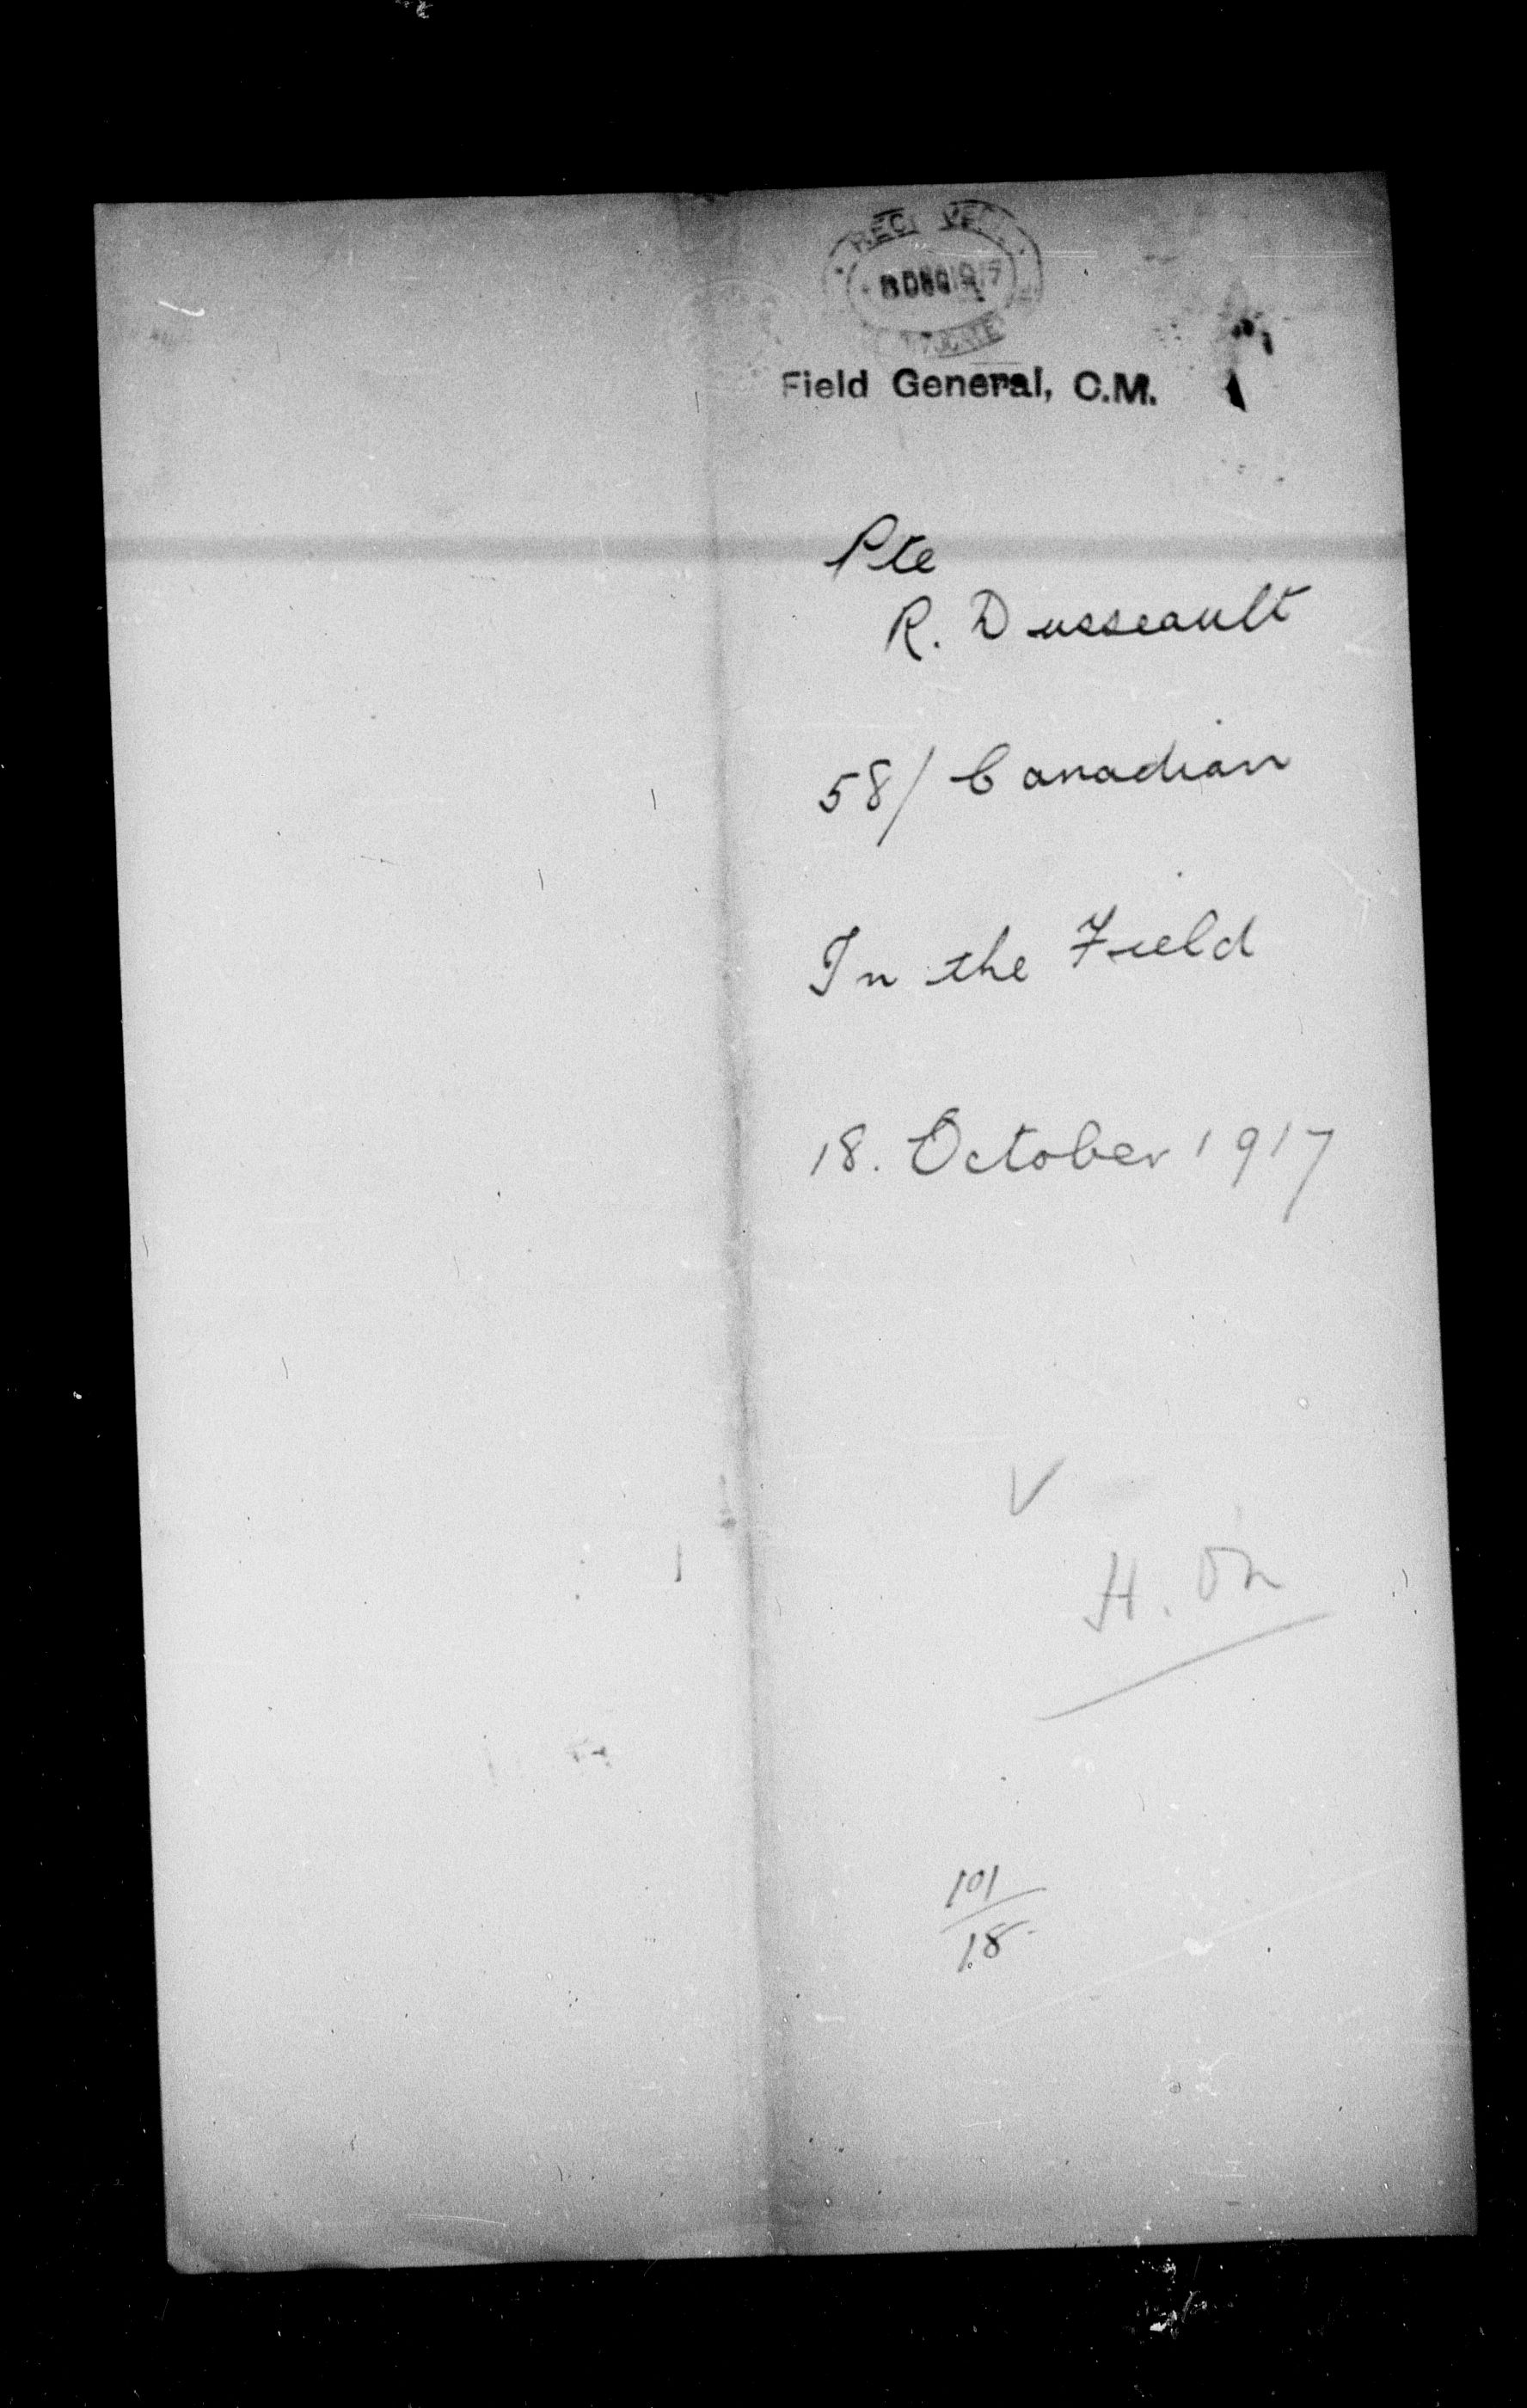 RECEIVED
Field General, C.M.
Pte
R. Dusseault
58/ Canadian
In the Field
18. October 1917
V
101
18